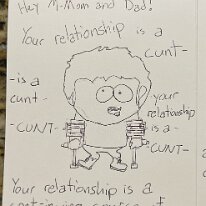 Hey M-Mom and Dad!
Your relationship is a
cunt-
-is a
cunt-
-CUNT-
your
relationship
is a-
-CUNT-
Your relationship is a